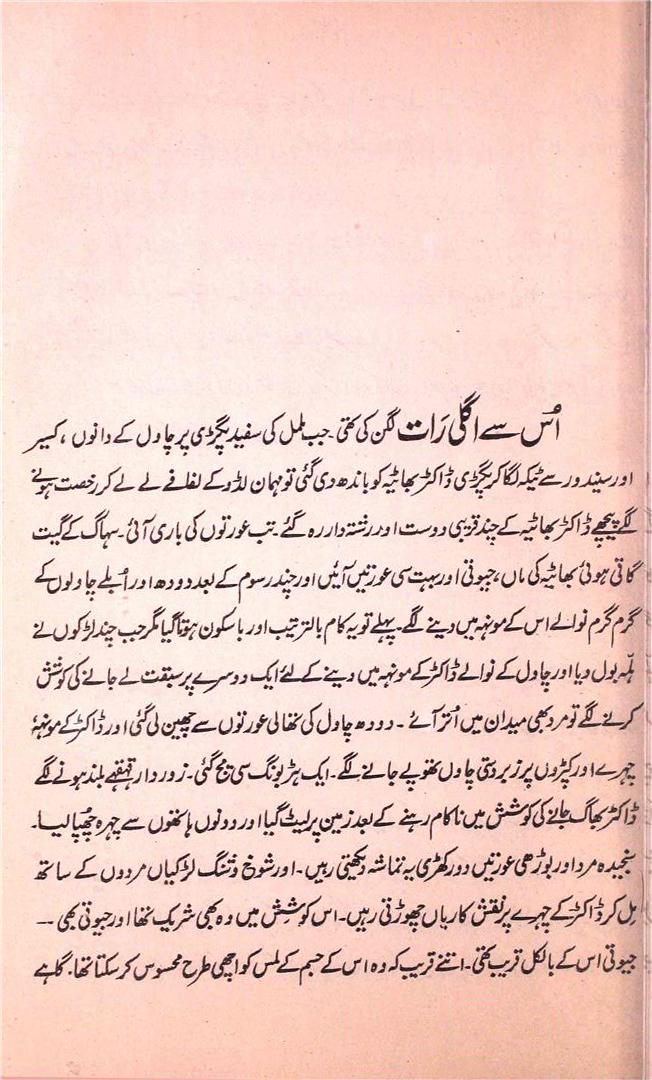 اُس سے اگلی رَات لگن کی تھی۔ جب ململ کی سفید پگڑی پر چاول کے دانوں، کیسر
اور سیندور سے ٹیکہ لگا کر پگڑی ڈاکٹر بھاٹیہ کو باندھ دی گئی تو مہمان لڈو کے لفافے لے لے کر رخصت ہونے
لگے پیچھے ڈاکٹر بھاٹیہ کے چند قریبی دوست اور رشتہ دار رہ گئے۔ تب عورتوں کی باری آئی۔ سہاگ کے گیت
گاتی ہوئی بھاٹیہ کی ماں، جیوتی اور بہت سی عورتیں آئیں اور چند رسوم کے بعد دودھ اور اُبلے چاولوں کے
گرم گرم نوالے اس کے مونہہ میں دینے لگے۔ پہلے تو یہ کام بالترتیب اور باسکون ہوتا گیا مگر جب چند لڑکوں نے
ہلّہ بول دیا اور چاول کے نوالے ڈاکٹر کے مونہہ میں دینے کے لئے ایک دوسرے پر سبقت لے جانے کی کوشش
کرنے لگے تو مرد بھی میدان میں اُتر آئے ۔ دودھ چاول کی تھالی عورتوں سے چھین لی گئی اور ڈاکٹر کے مونہہ
چہرے اور کپڑوں پر زبردستی چاول تھوپے جانے لگے۔ ایک ہڑبونگ سی مچ گئی۔ زوردار قہقہے بلند ہونے لگے
ڈاکٹر بھاگ جانے کی کوشش میں ناکام رہنے کے بعد زمین پر لیٹ گیا اور دونوں ہاتھوں سے چہرہ چھپا لیا۔
سنجیدہ مرد اور بوڑھی عورتیں دور کھڑی یہ تماشہ دیکھتی رہیں ۔ اور شوخ و شنگ لڑکیاں مردوں کے ساتھ
مِل کر ڈاکٹر کے چہرے پر نقش کاریاں چھوڑتی رہیں۔ اس کوشش میں وہ بھی شریک تھا اور جیوتی بھی ۔۔
جیوتی اس کے بالکل قریب تھی۔ اتنے قریب کہ وہ اس کے جسم کے لمس کو اچھی طرح محسوس کر سکتا تھا۔ گاہے